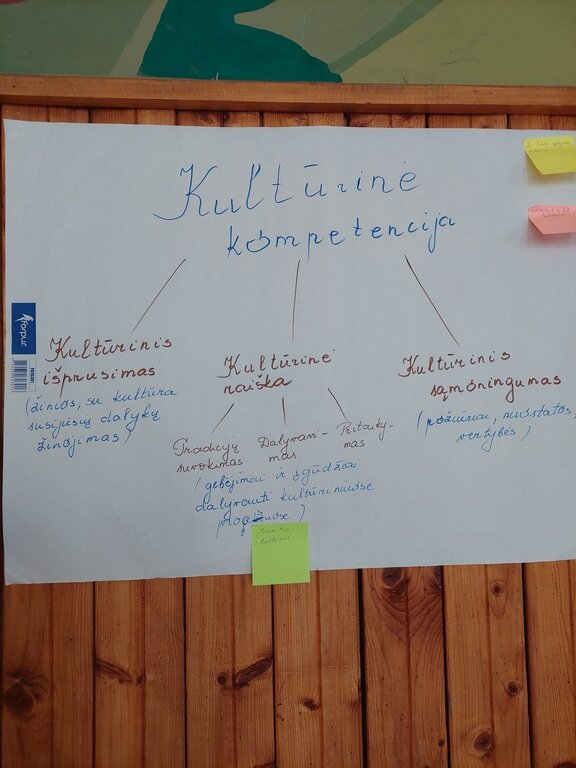 Kultūrinė
kompetencija
Forpus
Kultūrinis
išprusimas
(žinios, su kultūra
susijusių dalykų
žinojimas)
Kultūrinė
raiška
Tradicijų
suvokimas
Dalyvavi-
mas
Pritaiky-
mas
(gebėjimai ir įgūdžiai
dalyvauti kultūriniuose
procesuose)
Kultūrinis
sąmoningumas
(požiūriai, nuostatos,
vertybės)